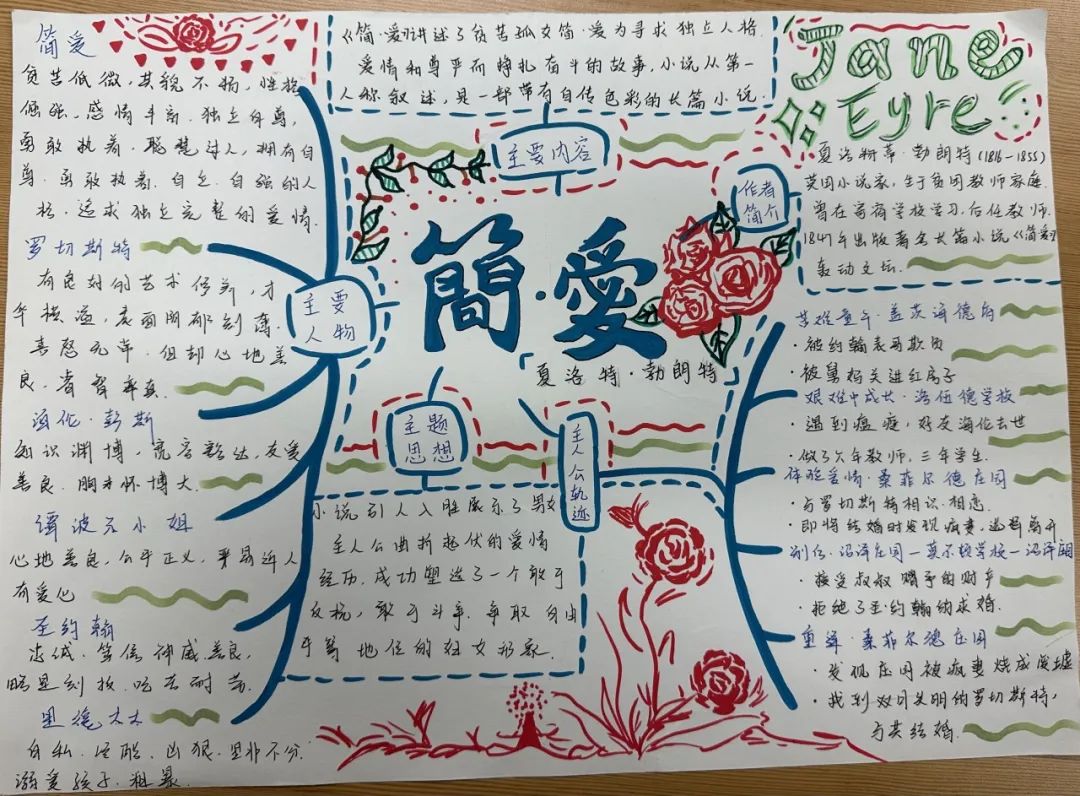 简爱
贫苦低微，其貌不扬，性格
倔强，感情丰富，独立自尊，
勇敢执着．聪慧过人，拥有自
尊．勇敢执着．自立．自强的人
格．追求独立完整的爱情．
罗切斯特
有良好的艺术修养，才
华横溢，表面阴郁刻薄．
喜怒无常．但却心地善
良．率真．
海伦·彭斯
知识渊博，宽容豁达，友爱
善良．胸怀博大．
谭波尔小姐
心地善良，公平正义，平易近人
有爱心
圣约翰
忠诚．笃信神威，善良，
刻板．吃苦耐劳．
里德太太
自私．冷酷．凶狠．是非不分．
溺爱孩子．粗暴．
《简·爱》讲述了贫苦孤女简·爱为寻求独立人格．
爱情和尊严而挣扎奋斗的故事，小说从第一
人称叙述，是一部带有自传色彩的长篇小说．
主要内容
簡·愛
夏洛特·勃朗特
主要
人物
主题
思想
小说引人入胜展示了男女
主人公曲折起伏的爱情
经历，成功塑造了一个敢于
反抗，敢于斗争．争取自由
平等地位的妇女形象．
主人公轨迹
作者
简介
Jane
Eyre
夏洛特·勃朗特(1816-1855)
英国小说家，生于贫困教师家庭．
曾在寄宿学校学习，后任教师．
1847年出版著名长篇小说《简爱》
轰动文坛．
苦难童年·盖茨海德府
·被约翰表哥欺负
·被舅妈关进红房子
艰难中成长·洛伍德学校
·遇到瘟疫，好友海伦去世
·做了六年教师，三年学生．
体验爱情·桑菲尔德庄园
·与罗切斯特相识相恋
·即将结婚时发现疯妻，选择离开
别任·沼泽庄园—莫尔顿学校—沼泽庄园
·接受叔叔赠予的财产
·拒绝了圣约翰的求婚．
重逢·桑菲尔德庄园
·发现庄园被疯妻烧成废墟
·找到双目失明的罗切斯特，
与其结婚．